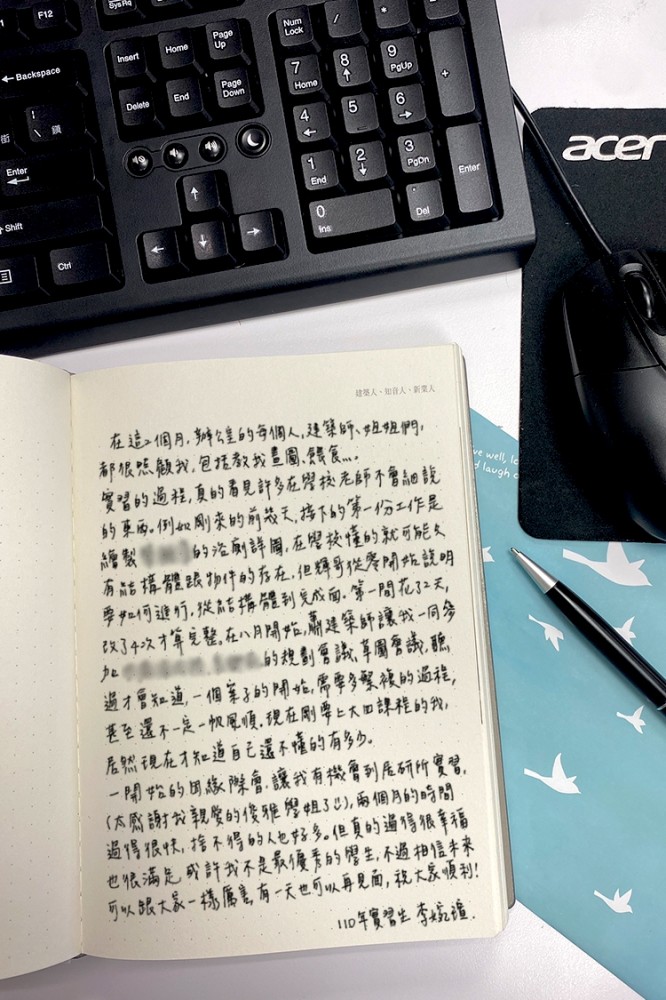 F12
SysRq
Backspace
Insert
Home
Page Up
Delete
End
Page Down
Enter
Shift
Ctrl
Num Lock
/
*
-
7 Home
8
9 PgUp
+
4
5
6
1 End
2
3 PgDn
Enter
0 Ins
. Del
acer
建築人、知音人、新葉人
在這2個月,辦公室的每個人,建築師、姐姐們,
都很照顧我,包括教我畫圖、餵食…。
實習的過程,真的看見許多在學校老師不會細說
的東西。例如剛來的前幾天,接下的第一份工作是
繪製 的浴廁詳圖,在學校懂的就可能只
有結構體跟物件的存在,但輝哥從零開始說明
要如何進行,從結構體到完成面。第一間花了2天,
改了4次才算完整。在八月開始,蕭建築師讓我一同參
加 的規劃會議、草圖會議,聽
過才會知道,一個案子的開始,需要多繁複的過程,
甚至還不一定一帆風順。現在剛要上大四課程的我,
居然現在才知道自己還不懂的有多少。
一開始的因緣際會,讓我有機會到居研所實習,
(太感謝我親愛的俊雅學姐了),兩個月的時間
過得很快,捨不得的人也好多。但真的過得很幸福
也很滿足 或許我不是最優秀的學生,不過相信未來
可以跟大家一樣厲害,有一天也可以再見面,祝大家順利!
110年實習生 李婉瑄.
ve well, lo
d laugh o